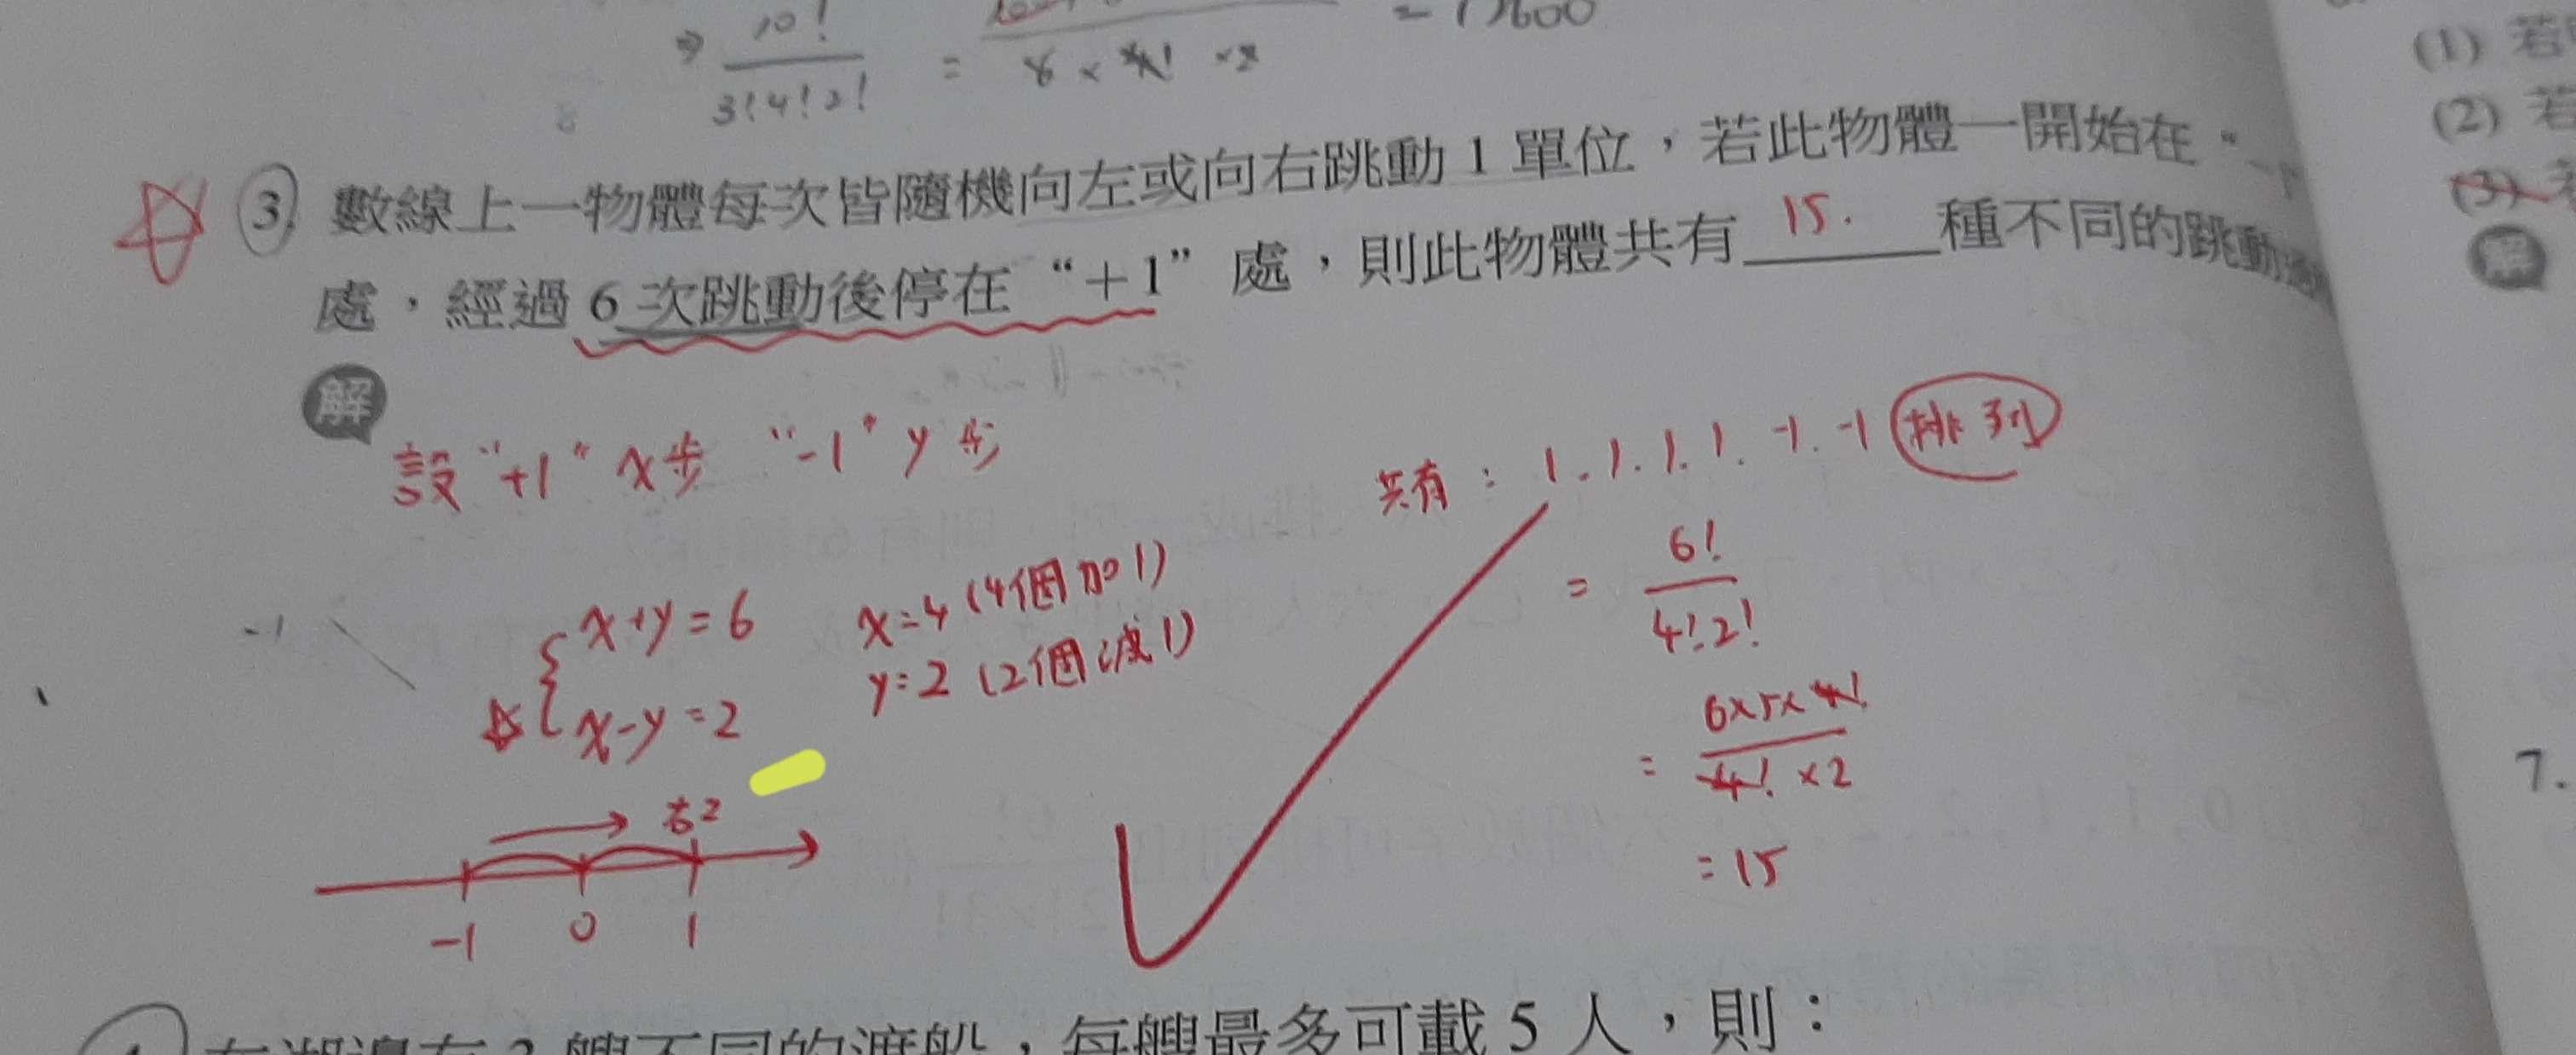 ⇒ 10! / 3!4!2! = / 8 × 4! × 2 = 12600
③ 數線上一物體每次皆隨機向左或向右跳動 1 單位,若此物體一開始在 “−1
處,經過 6 次跳動後停在“+1”處,則此物體共有 15. 種不同的跳動
解
設 "+1" x步 "-1" y步
共有 : 1.1.1.1.-1.-1 排列
x+y=6
x=4 (4個加1)
= 6! / 4!2!
x-y=2
y=2 (2個減1)
= 6×5×4! / 4! ×2
右2
= 15
-1 0 1
-1
艘不同的渡船,每艘最多可載 5 人,則:
(1) 若
(2) 若
(3)
解
7.